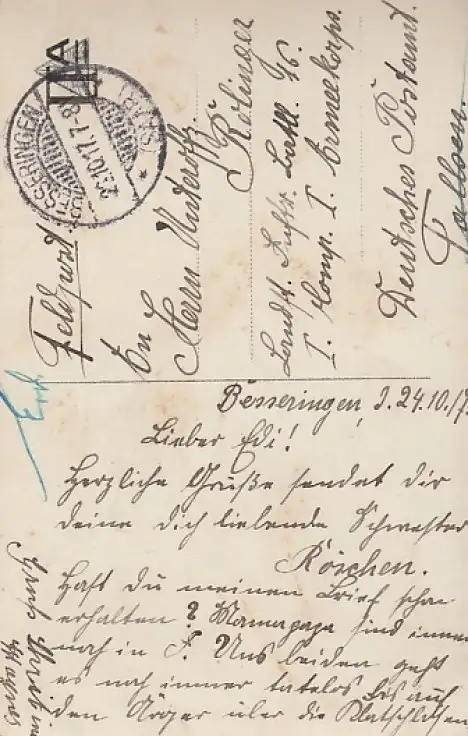 BESSERINGEN
(BZ. TRIER)
25.10.17. 7-8
Feldpost
An
Herrn Unteroffz.
Rölinger
Landst. Inftr. Batl.
I. Komp. I. Armeekorps.
Deutsches Postamt.
Besseringen, d. 24.10./
Lieber Edi!
Herzliche Grüße sendet dir
deine dich liebende Schwester
Röschen.
Hast du meinen Brief schon
erhalten? Mamapapa sind immer
noch in F. Uns beiden geht
es noch immer tadelos bis auf
den Ärger über die